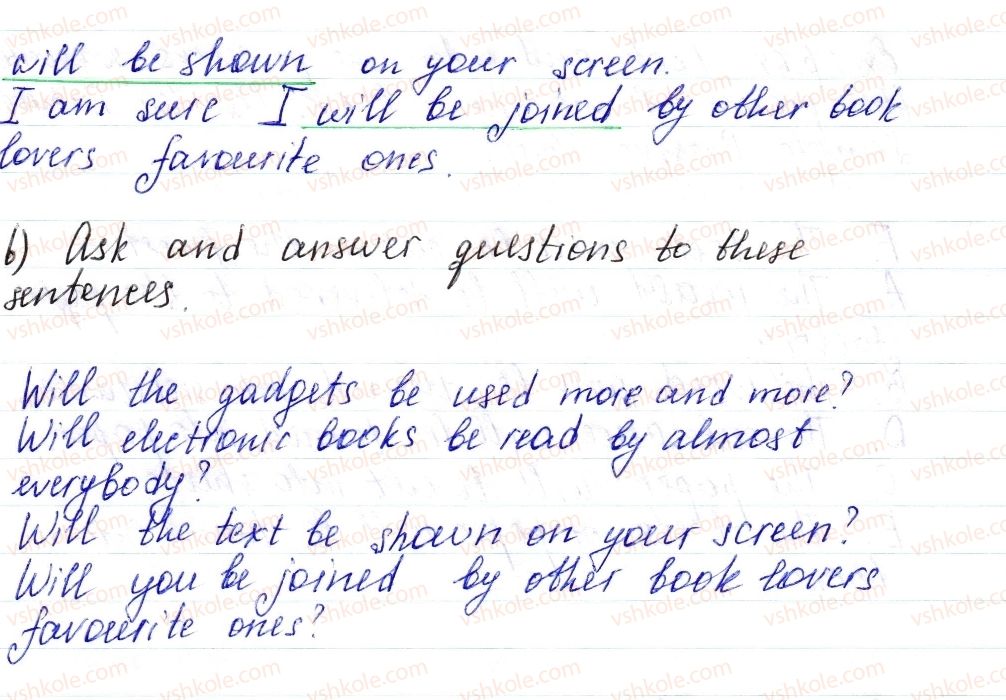 will be shown on your screen.
I am sure I will be joined by other book
lovers favourite ones.
b) Ask and answer questions to these
sentences.
Will the gadgets be used more and more?
Will electronic books be read by almost
everybody?
Will the text be shown on your screen?
Will you be joined by other book lovers
favourite ones?